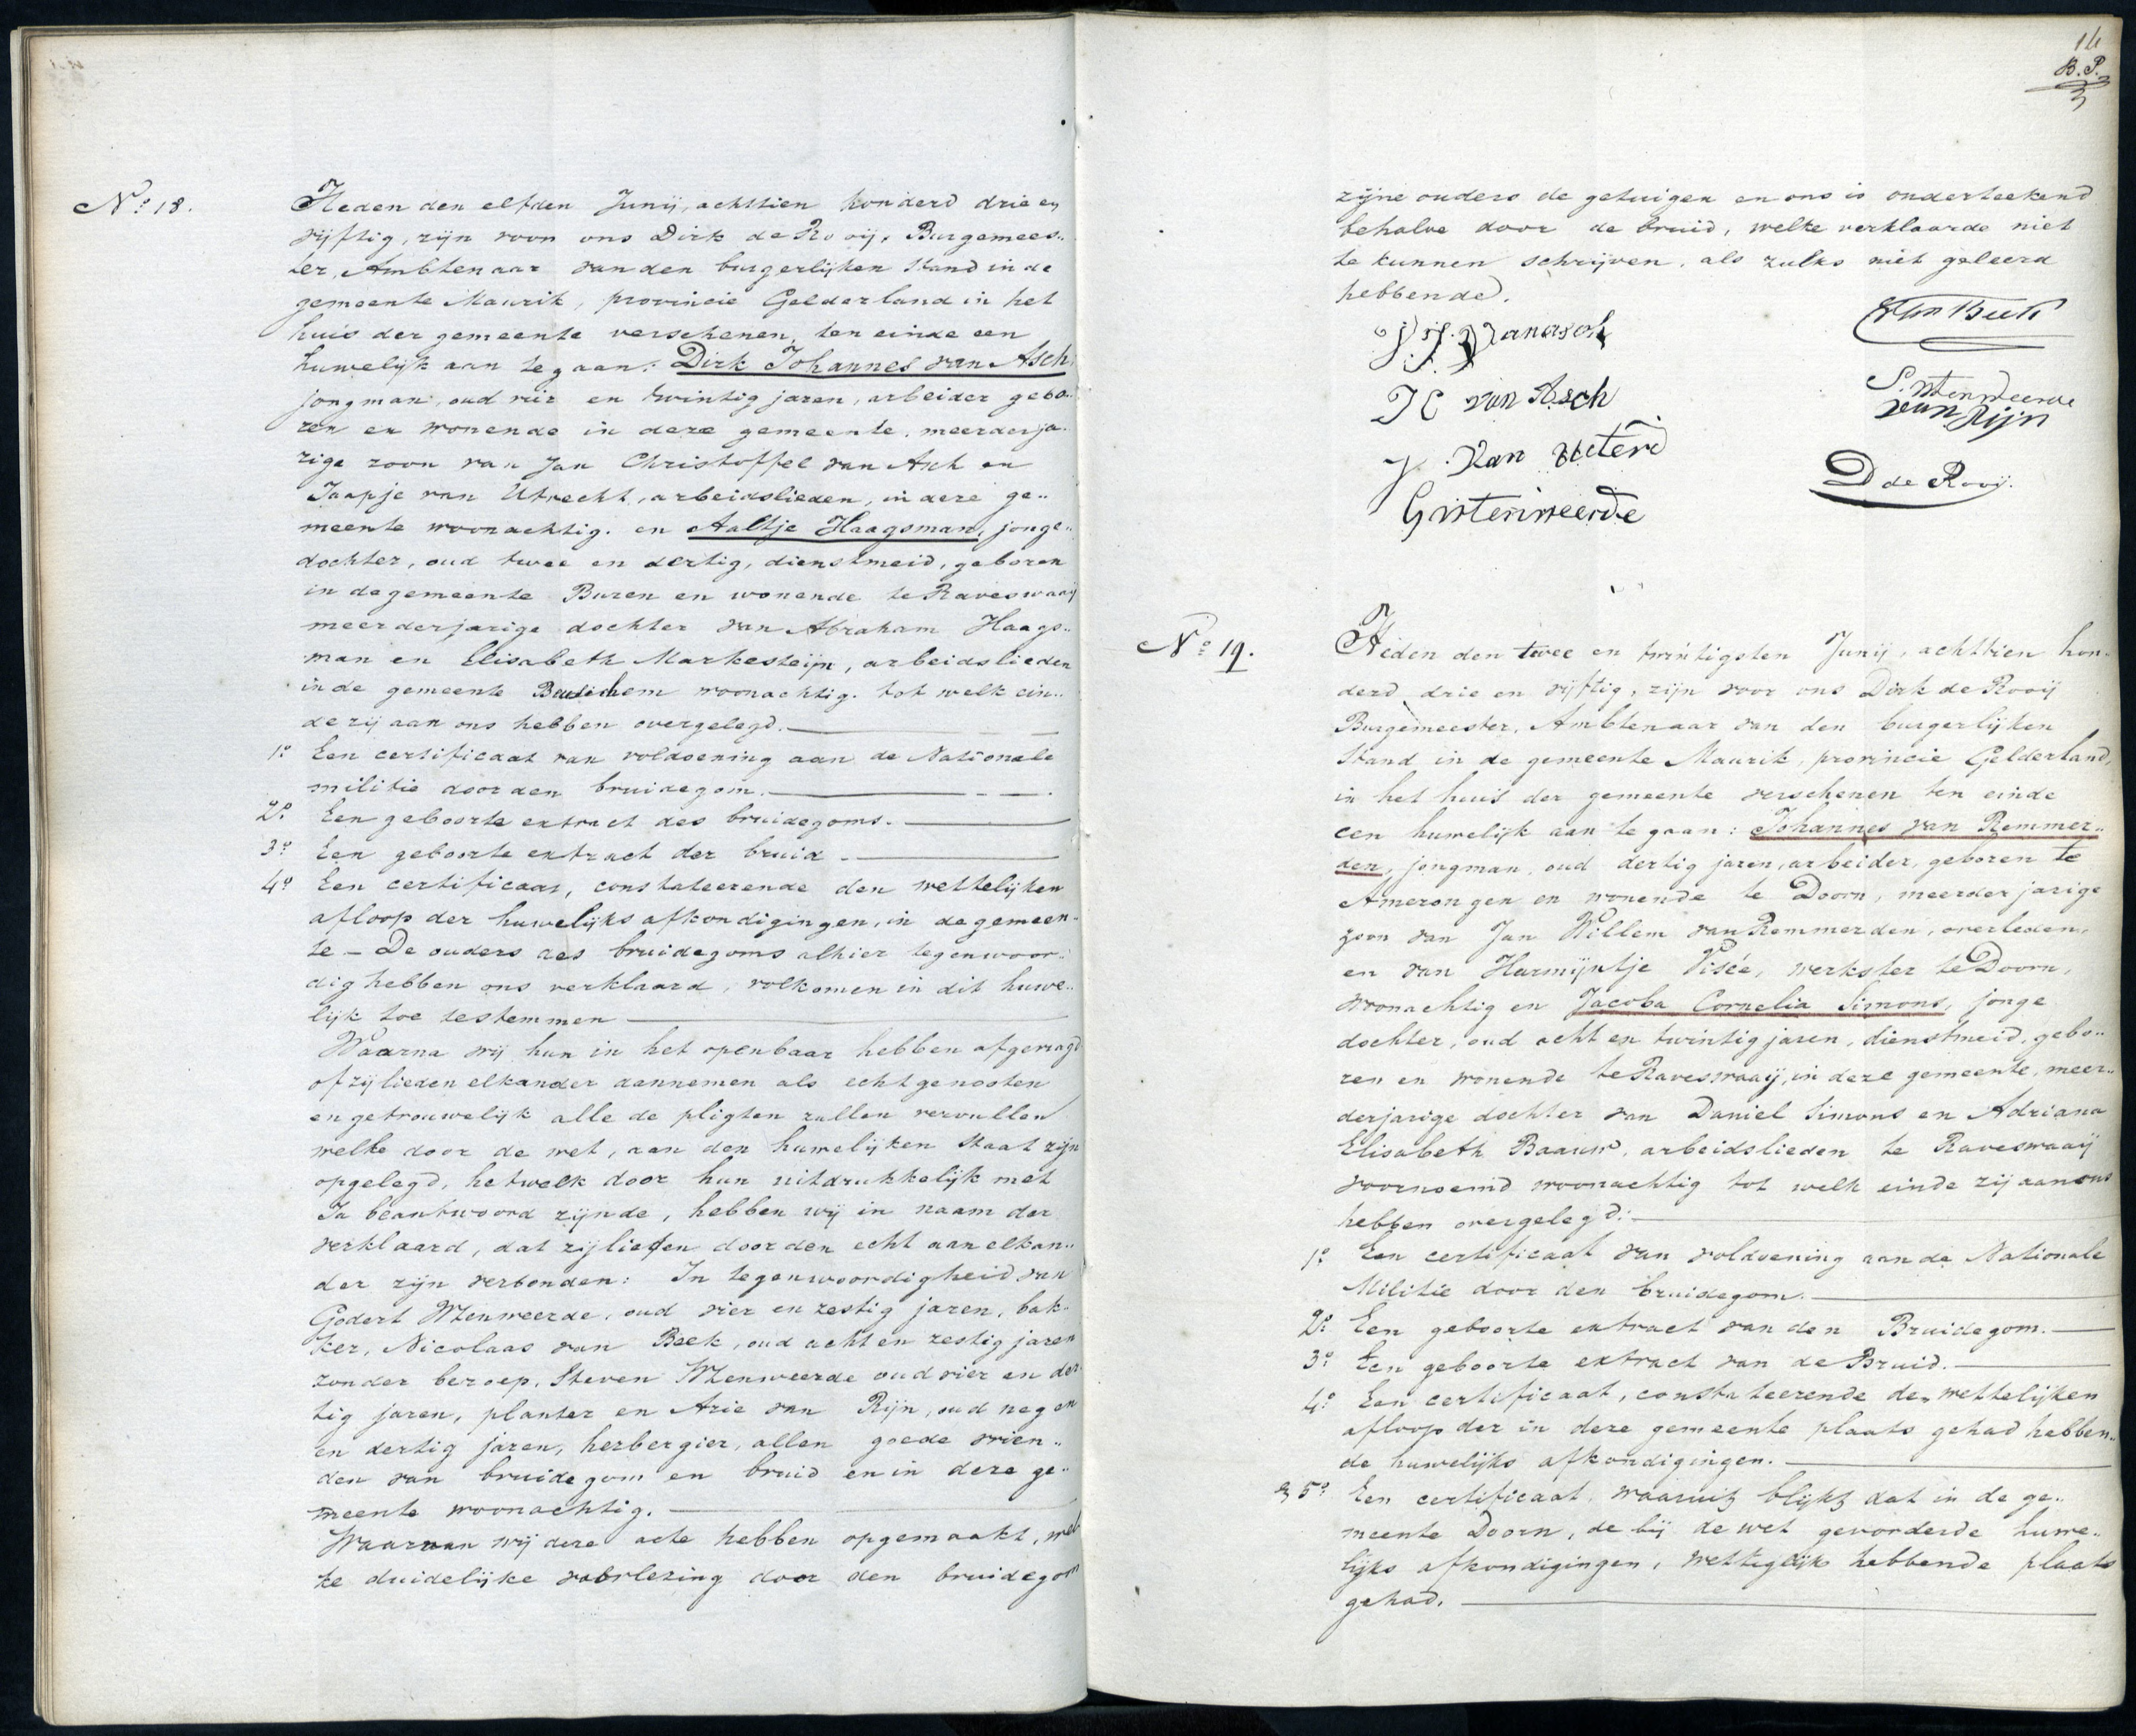 No 18.
Heden den elfden Junij, achttien honderd drie en
vijftig, zijn voor ons Dirk de Rooij, Burgemees„
ter, Ambtenaar van den burgerlijken Stand in de
gemeente Maurik, provincie Gelderland in het
huis der gemeente verschenen, ten einde een
huwelijk aan te gaan: Dirk Johannes van Asch,
jongman, oud vier en twintig jaren, arbeider gebo„
ren en wonende in deze gemeente, meerderja„
rige zoon van Jan Christoffel van Asch en
Jaapje van Utrecht, arbeidslieden, in deze ge„
meente woonachtig. en Aaltje Haagsman, jonge„
dochter, oud twee en dertig, dienstmeid, geboren
in de gemeente Buren en wonende te Ravenswaaij
meerderjarige dochter van Abraham Haags„
man en Elisabeth Markesteijn, arbeidslieden
in de gemeente Beusichem woonachtig. tot welk ein„
de zij aan ons hebben overgelegd.
1o Een certificaat van voldoening aan de Nationale
militie door den bruidegom.
2o Een geboorte extract des bruidegoms.
3o Een geboorte extract der bruid
4o Een certificaat, constateerende den wettelijken
afloop der huwelijks afkondigingen, in de gemeen„
te – De ouders des bruidegoms alhier tegenwoor„
dig hebben ons verklaard, volkomen in dit huwe„
lijk toe testemmen
Waarna wij hun in het openbaar hebben afgevraagd
of zijlieden elkander aannemen als echtgenooten
en getrouwelijk alle de pligten zullen vervullen
welke door de wet, aan den huwelijken Staat zijn
opgelegd, hetwelk door hun uitdrukkelijk met
Ja beantwoord zijnde, hebben wij in naam der
verklaard, dat zijlieden door den echt aan elkan„
der zijn verbonden: In tegenwoordigheid van
Godert Wtenweerde, oud vier en zestig jaren, bak„
ker, Nicolaas van Beek, oud acht en zestig jaren
zonder beroep, Steven Wtenweerde oud vier en der„
tig jaren, planter en Arie van Rijn, oud negen
en dertig jaren, herbergier, allen goede vrien„
den van bruidegom en bruid en in deze ge„
meente woonachtig.
Waarvan wij deze acte hebben opgemaakt, wel„
ke duidelijke voorlezing door den bruidegom
14
B.P.
zijne ouders de getuigen en ons is onderteekend
behalve door de bruid, welke verklaarde niet
te kunnen schrijven, als zulks niet geleerd
hebbende.
van Asch
van Beek
J C van Asch
S. Wtenweerde
van Rijn
J. van Uterd
D de Rooij.
G Wtenweerde
No 19.
Heden den twee en twintigsten Junij, achttien hon„
derd drie en vijftig, zijn voor ons Dirk de Rooij
Burgemeester, Ambtenaar van den burgerlijken
Stand in de gemeente Maurik, provincie Gelderland,
in het huis der gemeente verschenen ten einde
een huwelijk aan te gaan: Johannes van Remmer„
den, jongman, oud dertig jaren, arbeider, geboren te
Amerongen en wonende te Doorn, meerderjarige
zoon van Jan Willem van Remmerden, overleden,
en van Harmijntje Visée, werkster te Doorn,
woonachtig en Jacoba Cornelia Simons, jonge
dochter, oud acht en twintig jaren, dienstmeid, gebo„
ren en wonende te Raveswaaij, in deze gemeente, meer„
derjarige dochter van Daniel Simons en Adriana
Elisabeth Baauw, arbeidslieden te Raveswaaij
voornoemd woonachtig tot welk einde zij aan ons
hebben overgelegd:
1o Een certificaat van voldoening aan de Nationale
Militie door den bruidegom.
2o Een geboorte extract van den Bruidegom.
3o Een geboorte extract van de Bruid.
4o Een certificaat, constateerende den wettelijken
afloop der in deze gemeente plaats gehad hebben„
de huwelijks afkondigingen.
5o Een certificaat, waaruit blijkt dat in de ge„
meente Doorn, de bij de wet gevorderde huwe„
lijks afkondigingen, wettiglijk hebbende plaats
gehad.